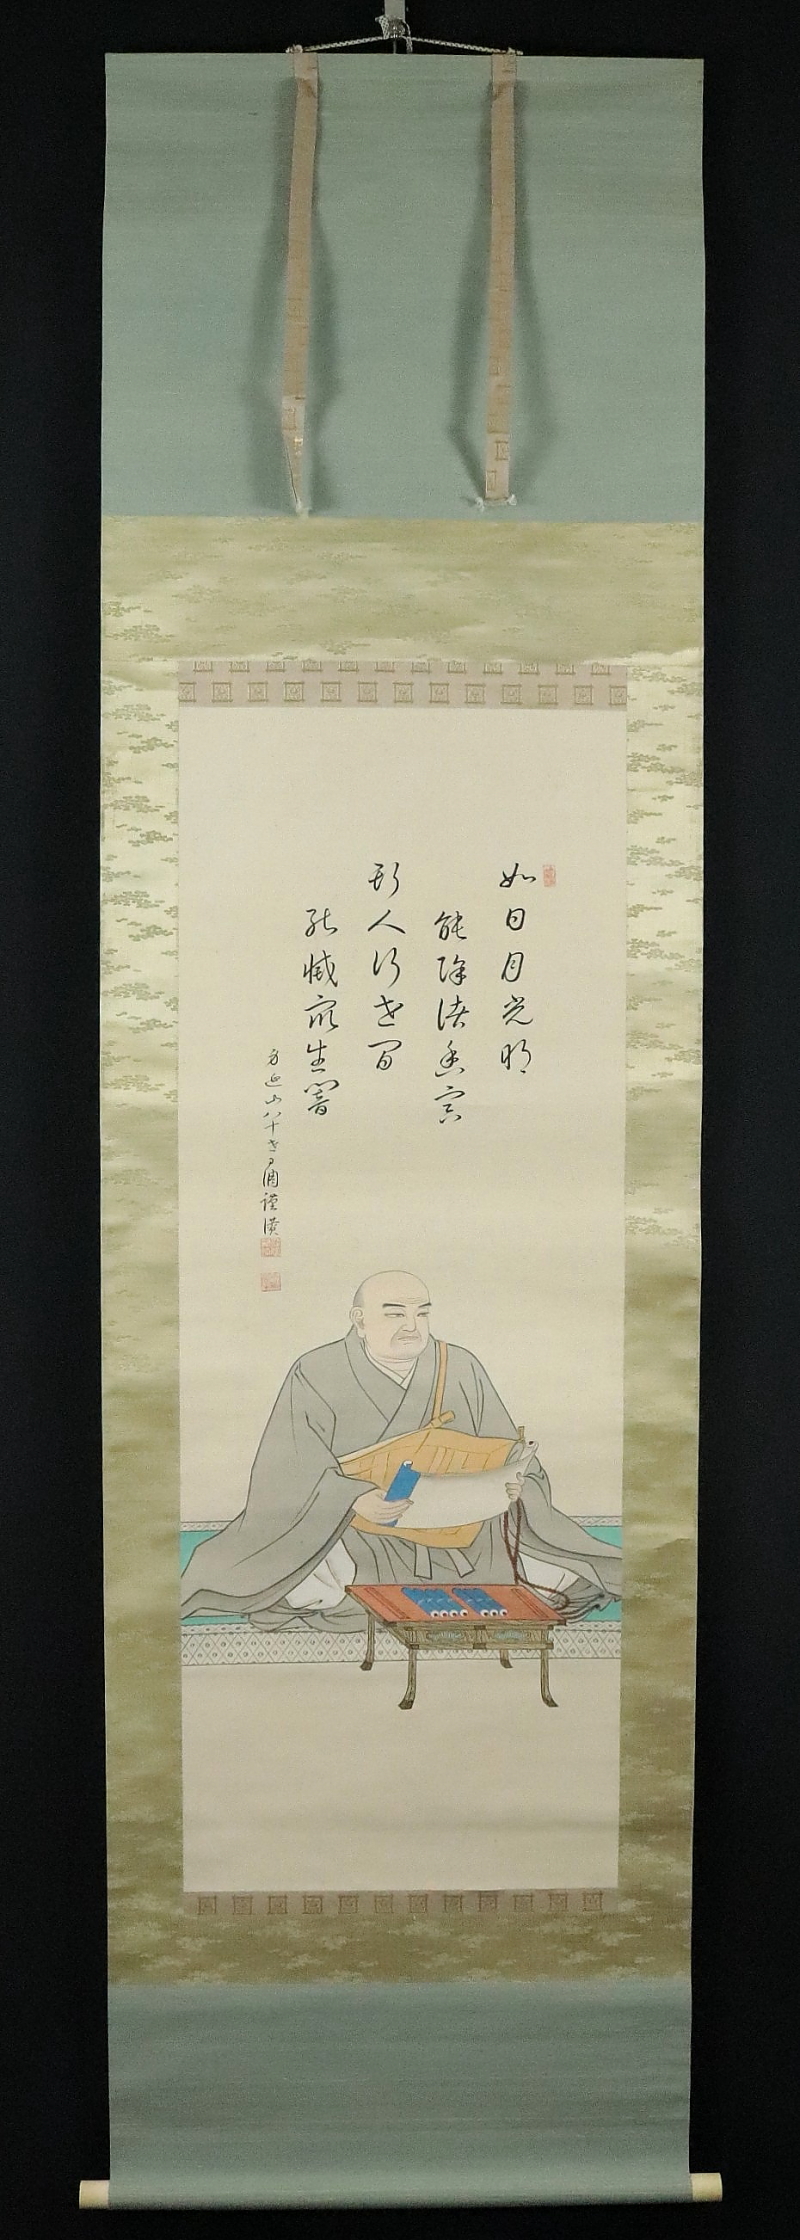 如日月光明
能除諸幽冥
斯人行世間
能滅衆生闇
身延山八十世 謹讃